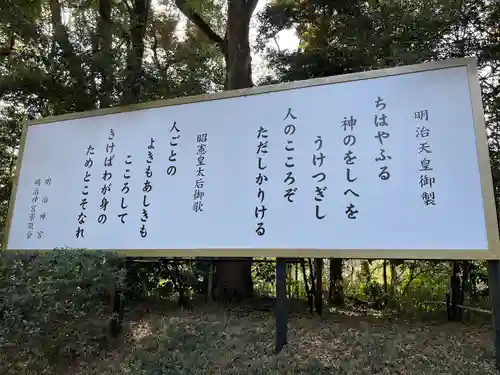 明治天皇御製
ちはやふる
神のをしへを
うけつぎし
人のこころぞ
ただしかりける
昭憲皇太后御歌
人ごとの
よきもあしきも
こころして
きけばわが身の
ためとこそなれ
明治神宮
明治神宮崇敬会